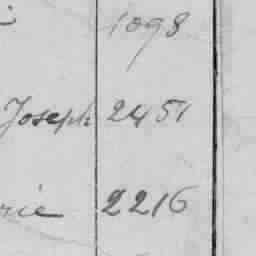 1098
Joseph 2451
rie 2216